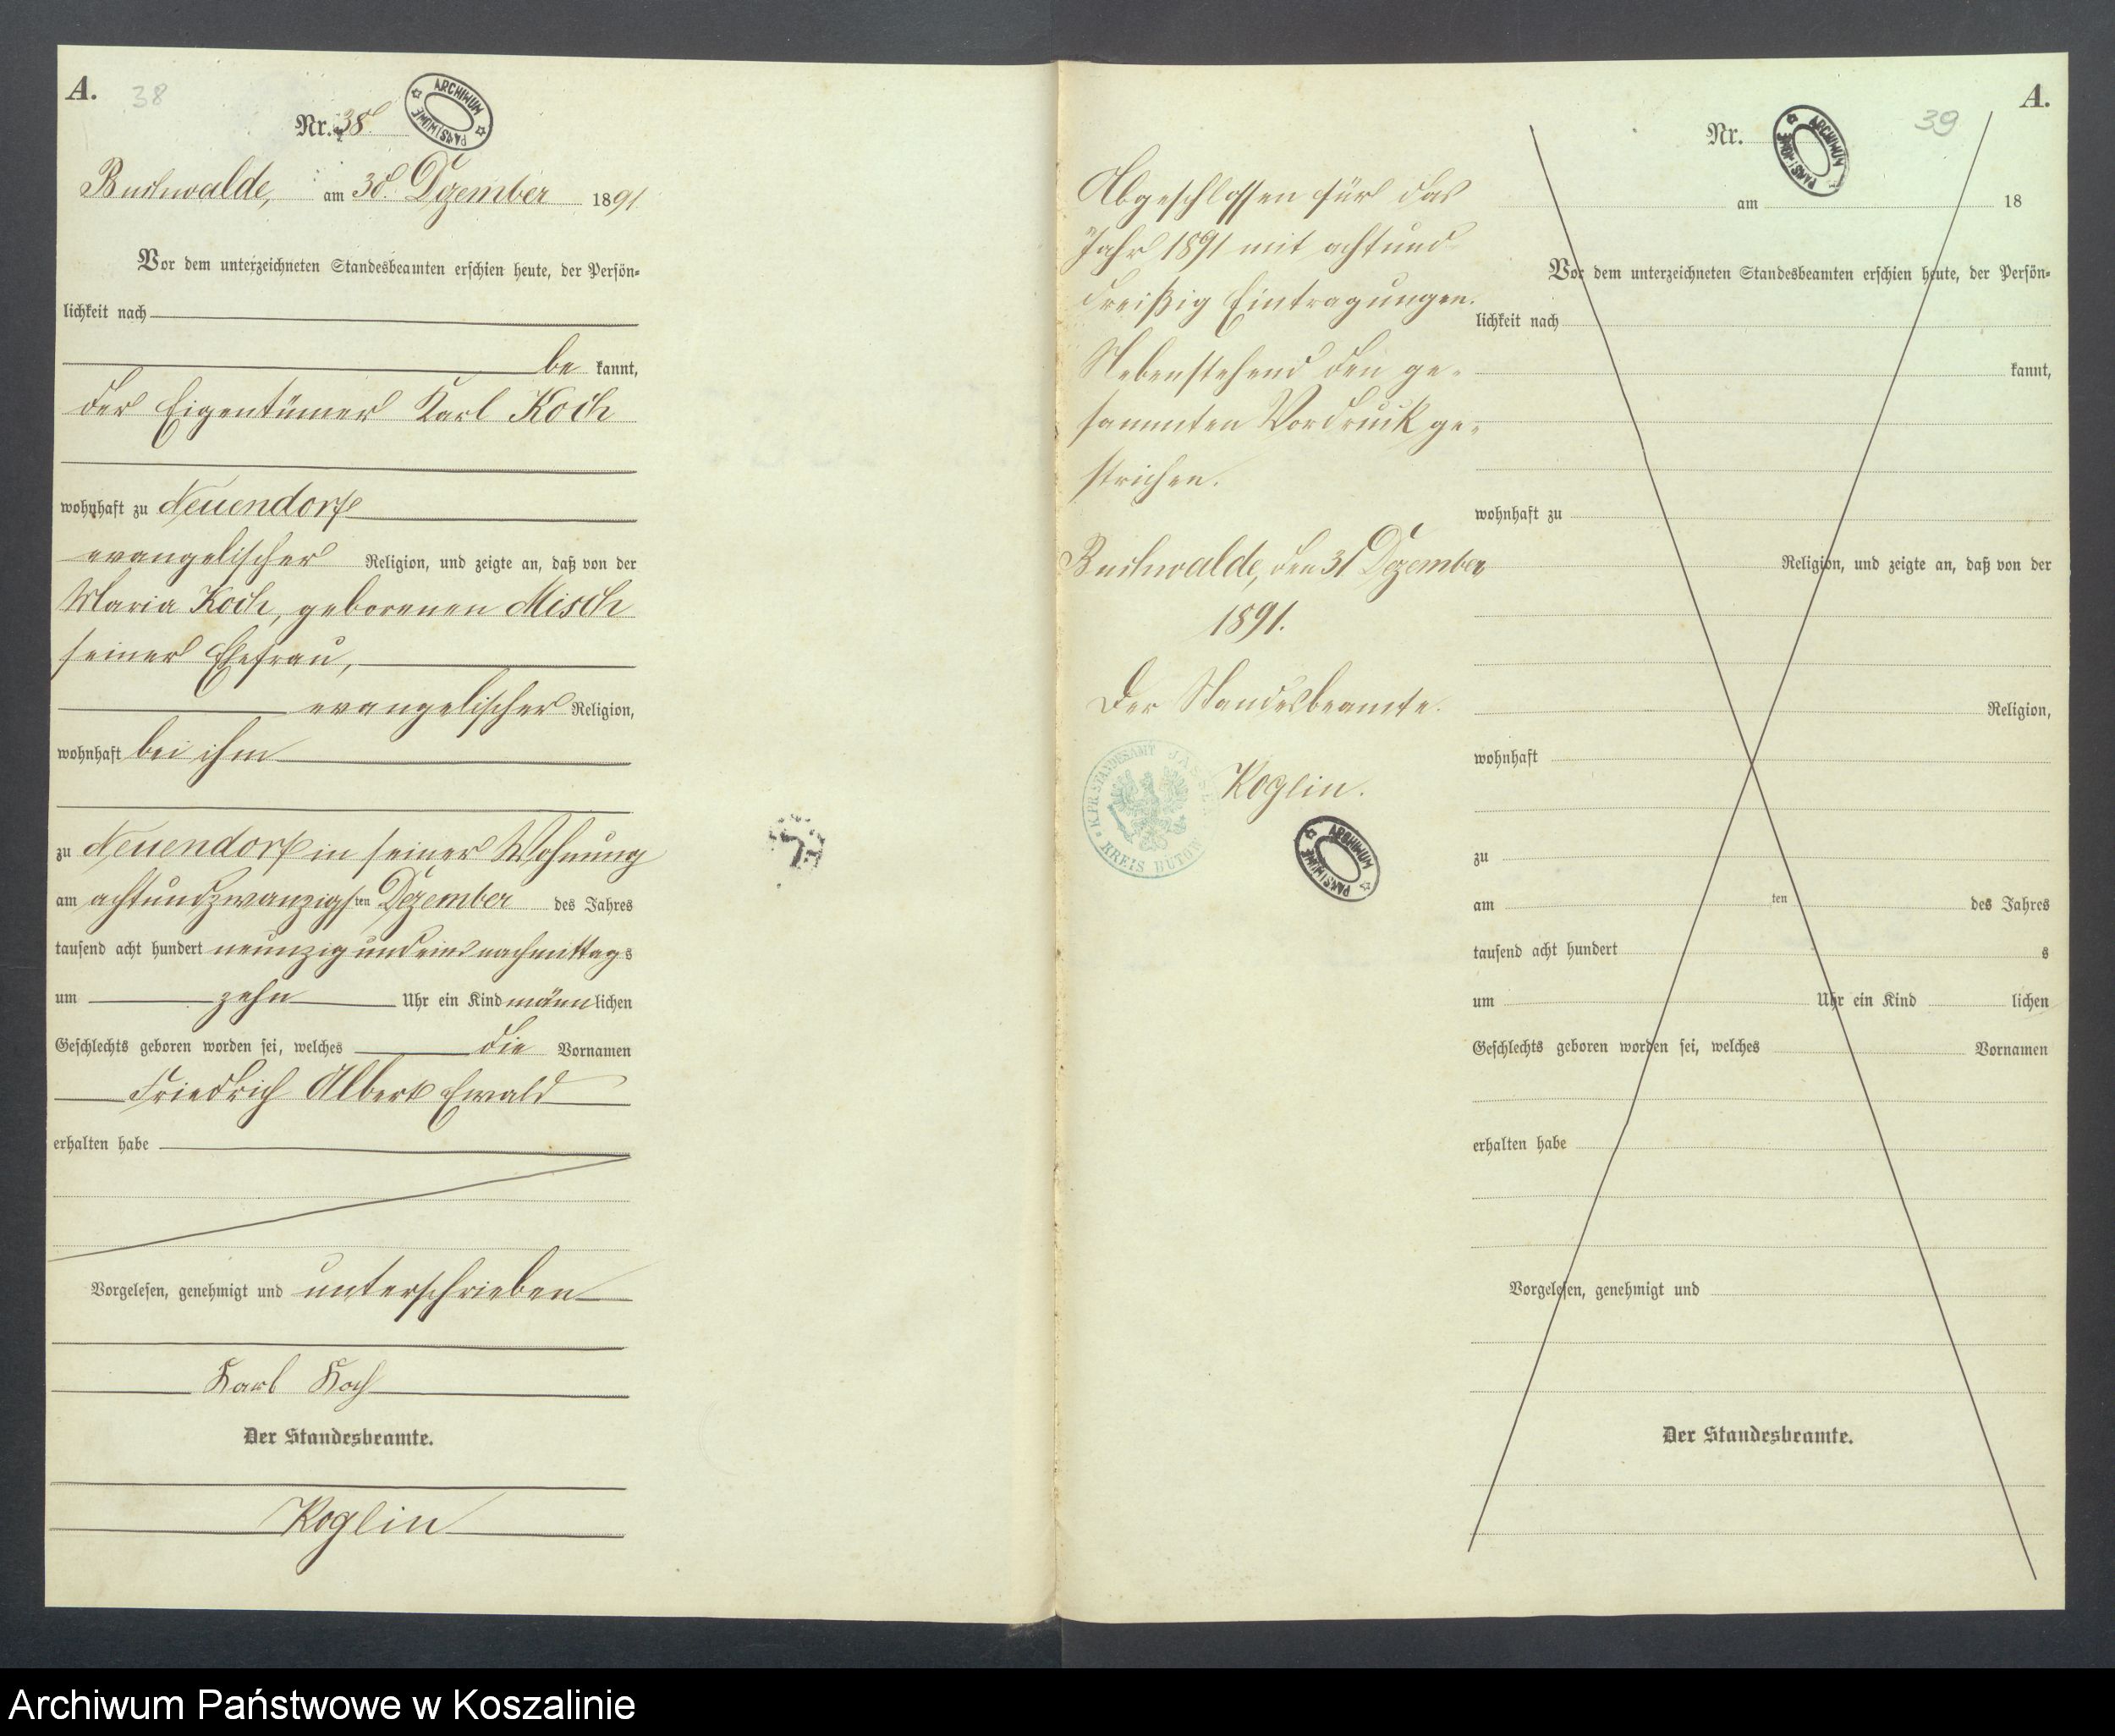 A.
38
Nr. 38.
ARCHIWUM PAŃSTWOWE
Buchwalde, am 30. Dezember 1891.
Vor dem unterzeichneten Standesbeamten erschien heute, der Persön-
lichkeit nach
be kannt,
der Eigentümer Karl Koch
wohnhaft zu Neuendorf
evangelischer Religion, und zeigte an, daß von der
Maria Koch, geborenen Misch
seiner Ehefrau,
evangelischer Religion,
wohnhaft bei ihm
zu Neuendorf in seiner Wohnung
am achtundzwanzigsten Dezember des Jahres
tausend acht hundert neunzig und eins nachmittags
um zehn Uhr ein Kind männlichen
Geschlechts geboren worden sei, welches die Vornamen
Friedrich Albert Ewald
erhalten habe
Vorgelesen, genehmigt und unterschrieben
Karl Koch
Der Standesbeamte.
Koglin
Abgeschlossen für das
Jahr 1891 mit achtund
dreißig Eintragungen.
Nebenstehend den ge-
sammten Vordruck ge-
strichen.
Buchwalde, den 31 Dezember
1891.
Der Standesbeamte.
Koglin.
K. PR. STANDESAMT JASSEN KREIS BÜTOW
ARCHIWUM PAŃSTWOWE
A.
39
Nr.
ARCHIWUM PAŃSTWOWE
am 18
Vor dem unterzeichneten Standesbeamten erschien heute, der Persön-
lichkeit nach
kannt,
wohnhaft zu
Religion, und zeigte an, daß von der
Religion,
wohnhaft
zu
am ten des Jahres
tausend acht hundert s
um Uhr ein Kind lichen
Geschlechts geboren worden sei, welches Vornamen
erhalten habe
Vorgelesen, genehmigt und
Der Standesbeamte.
Archiwum Państwowe w Koszalinie